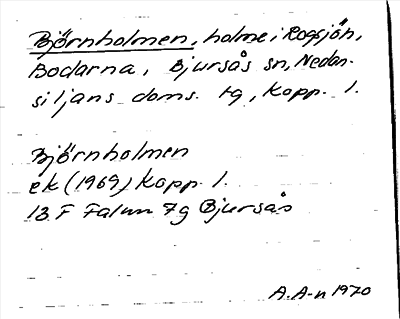 Björnholmen, holme i Rogsjön,
Bodarna, Bjursås sn, Nedan-
siljans doms. tg, Kopp. l.
Björnholmen
ek (1969) Kopp. l.
13 F Falun 7g Bjursås
A. A-n 1970